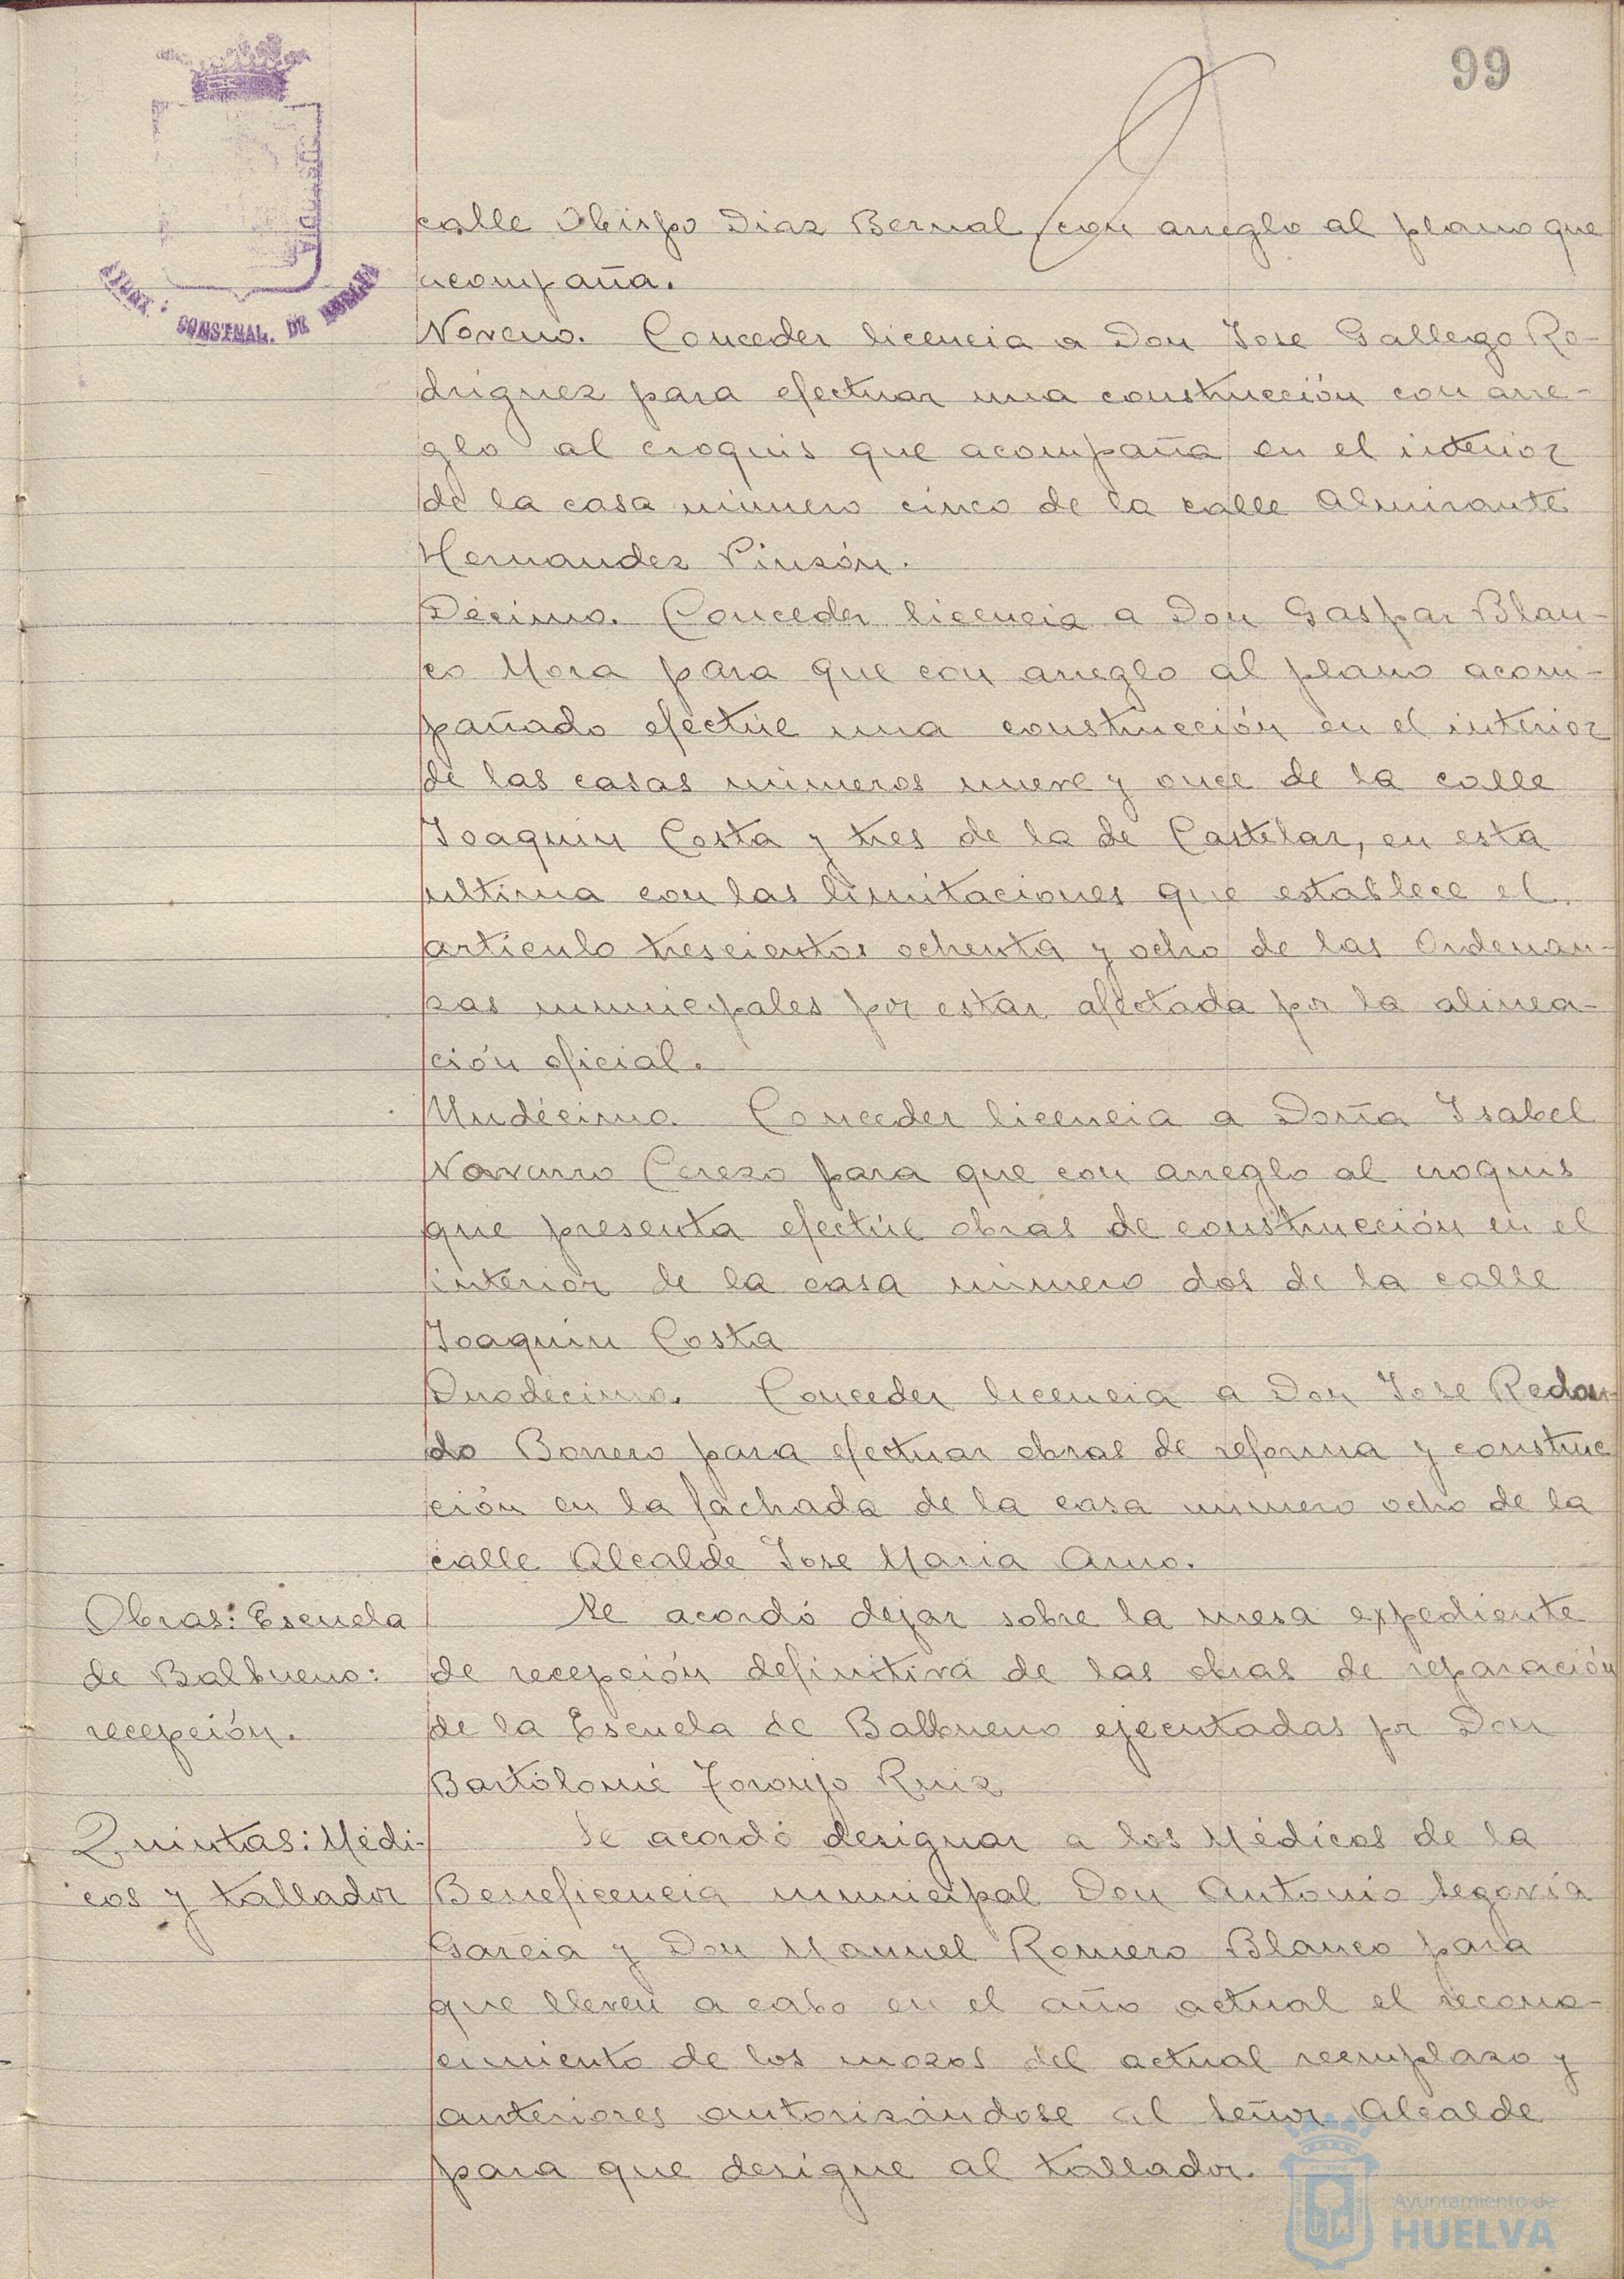 99
calle Obispo Diaz Bernal con arreglo al plano que
acompaña.
Noveno. Conceder licencia a Don Jose Gallego Ro-
driguez para efectuar una construcción con arre-
glo al croquis que acompaña en el interior
de la casa número cinco de la calle Almirante
Hernandez Pinzón.
Décimo. Conceder licencia a Don Gaspar Blan-
co Mora para que con arreglo al plano acom-
pañado efectúe una construcción en el interior
de las casas números nueve y once de la calle
Joaquin Costa y tres de la de Castelar, en esta
ultima con las limitaciones que establece el
articulo trescientos ochenta y ocho de las Ordenan-
zas municipales por estar afectada por la alinea-
ción oficial.
Undécimo. Conceder licencia a Doña Isabel
Navarro Cerezo para que con arreglo al croquis
que presenta efectúe obras de construcción en el
interior de la casa número dos de la calle
Joaquin Costa
Duodecimo. Conceder licencia a Don Jose Redon-
do Borrero para efectuar obras de reforma y construc
ción en la fachada de la casa numero ocho de la
calle Alcalde Jose Maria Amo.
Obras: Escuela
de Balbueno:
recepción.
Se acordó dejar sobre la mesa expediente
de recepción definitiva de las obras de reparación
de la Escuela de Balbueno ejecutadas por Don
Bartolomé Toronjo Ruiz
Quintas: Médi-
cos y tallador
Se acordó designar a los Médicos de la
Beneficencia municipal Don Antonio Segovia
García y Don Manuel Romero Blanco para
que lleven a cabo en el año actual el recono-
cimiento de los mozos del actual reemplazo y
anteriores autorizándose al Señor Alcalde
para que designe al tallador.
CONSTNAL. DE HUELVA
Ayuntamiento de
HUELVA